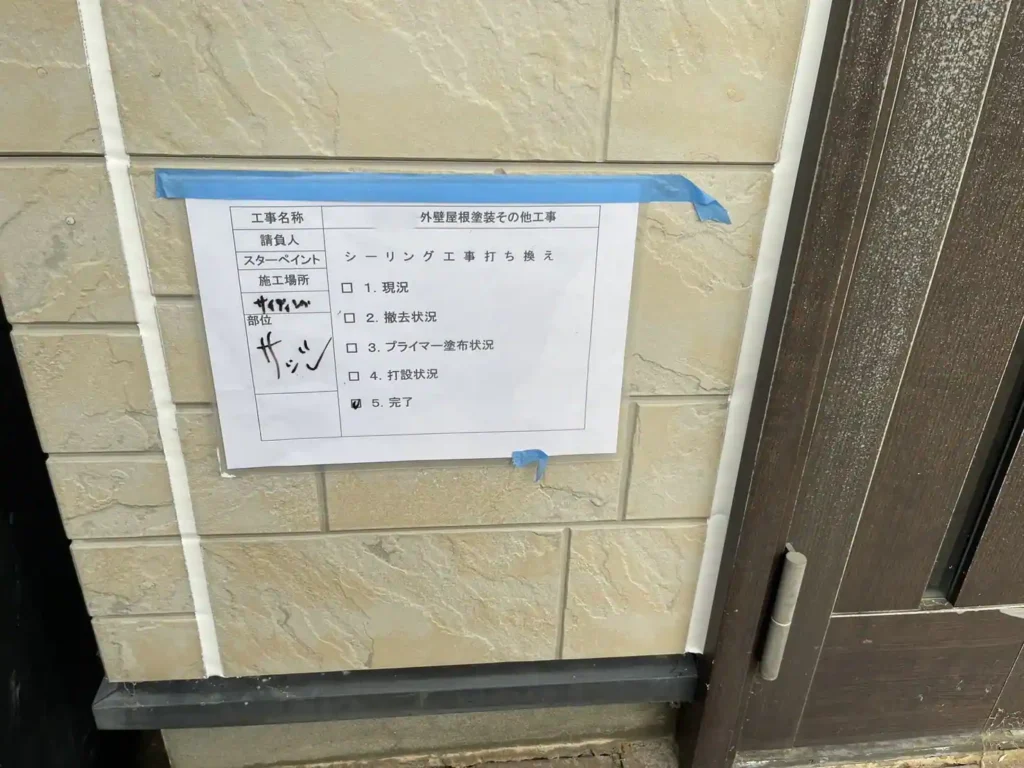 工事名称 外壁屋根塗装その他工事
請負人
スターペイント
シーリング工事打ち換え
施工場所
サイディング
部位
サッシ
□ 1. 現況
□ 2. 撤去状況
□ 3. プライマー塗布状況
□ 4. 打設状況
☑ 5. 完了